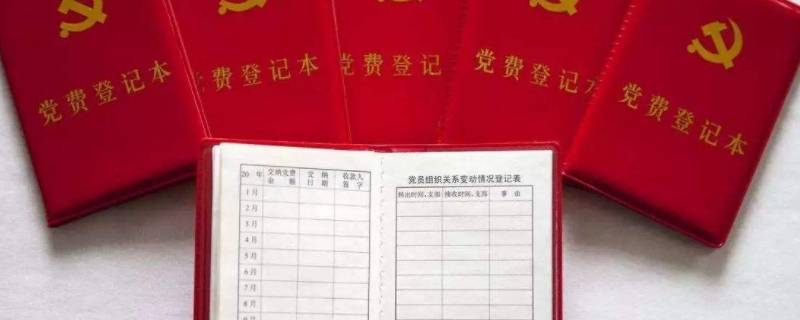 党费登记本
党费登记本
党费登记
党费登记
党费登记本
20 年
交纳党费
金 额
交 纳
日 期
收款人
签 字
1月
2月
3月
4月
5月
6月
7月
8月
党员组织关系变动情况登记表
转出时间、支部
接收时间、支部
事 由